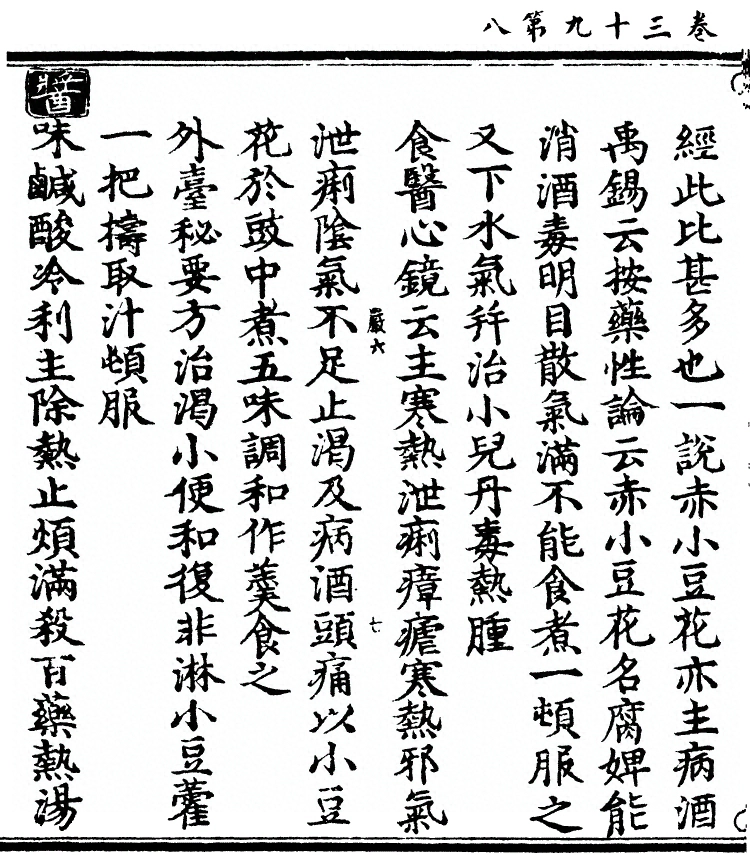 卷三十九第八
經此比甚多也一說赤小豆花亦主病酒
禹錫云按藥性論云赤小豆花名腐婢能
消酒毒明目散氣滿不能食煮一頓服之
又下水氣并治小兒丹毒熱腫
食醫心鏡云主寒熱泄痢瘴瘧寒熱邪氣
嚴六
七
泄痢陰氣不足止渴及病酒頭痛以小豆
花於豉中煮五味調和作羹食之
外臺秘要方治渴小便和復非淋小豆藿
一把擣取汁頓服
醬
味鹹酸冷利主除熱止煩滿殺百藥熱湯